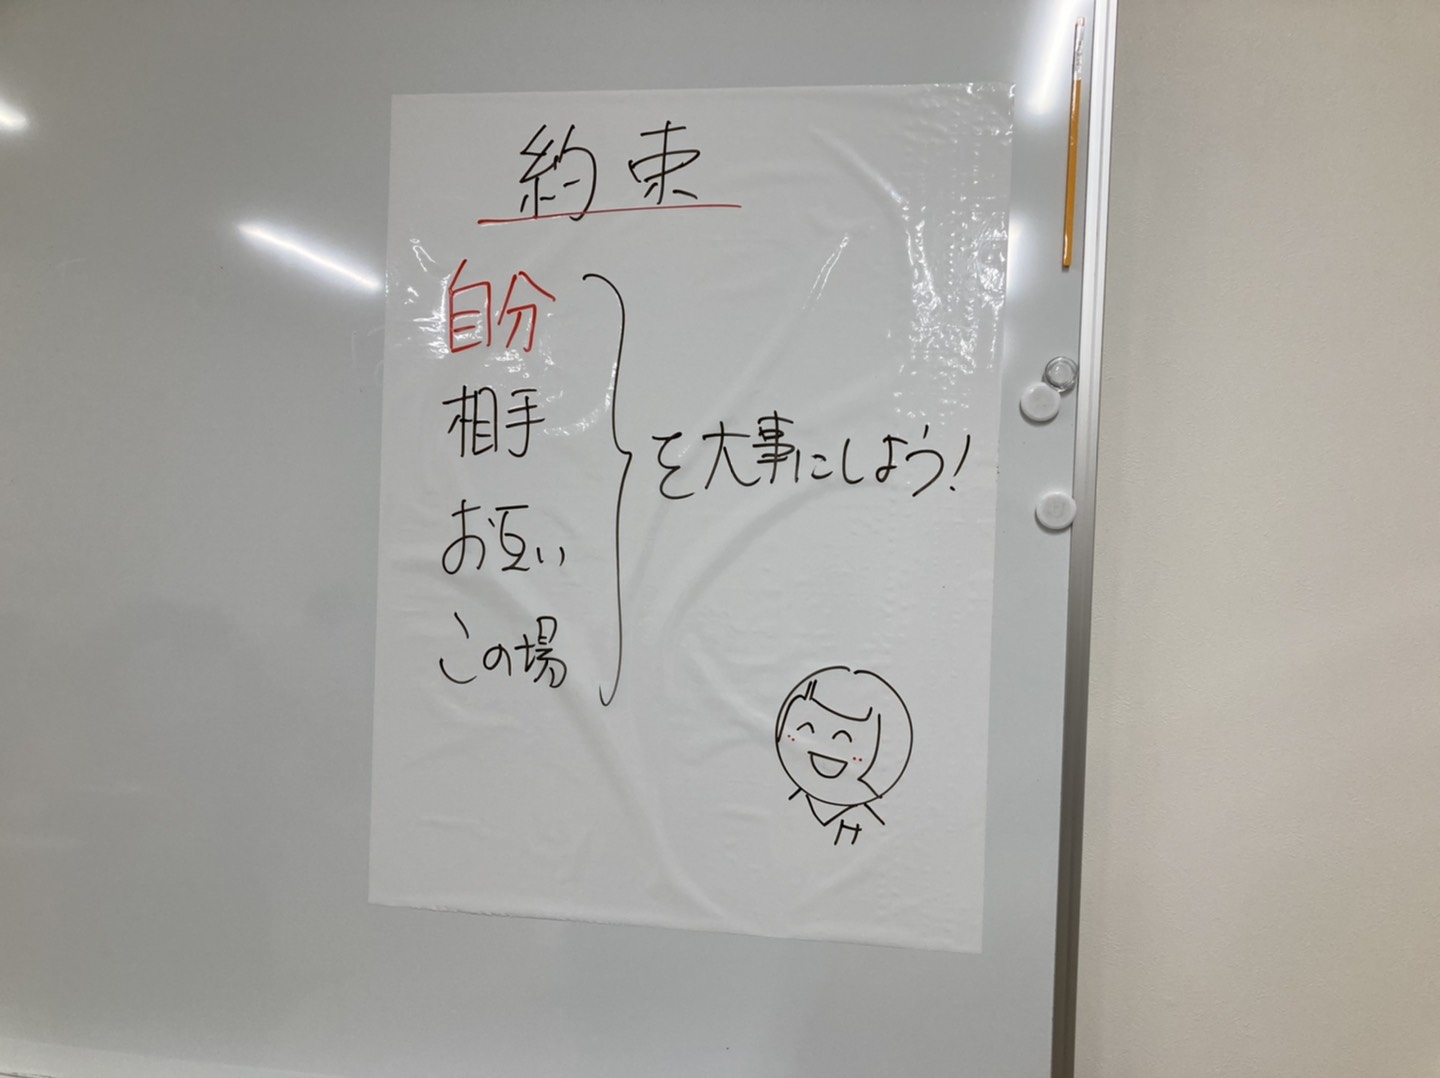 約束
自分
相手
お互い
この場
を大事にしよう!